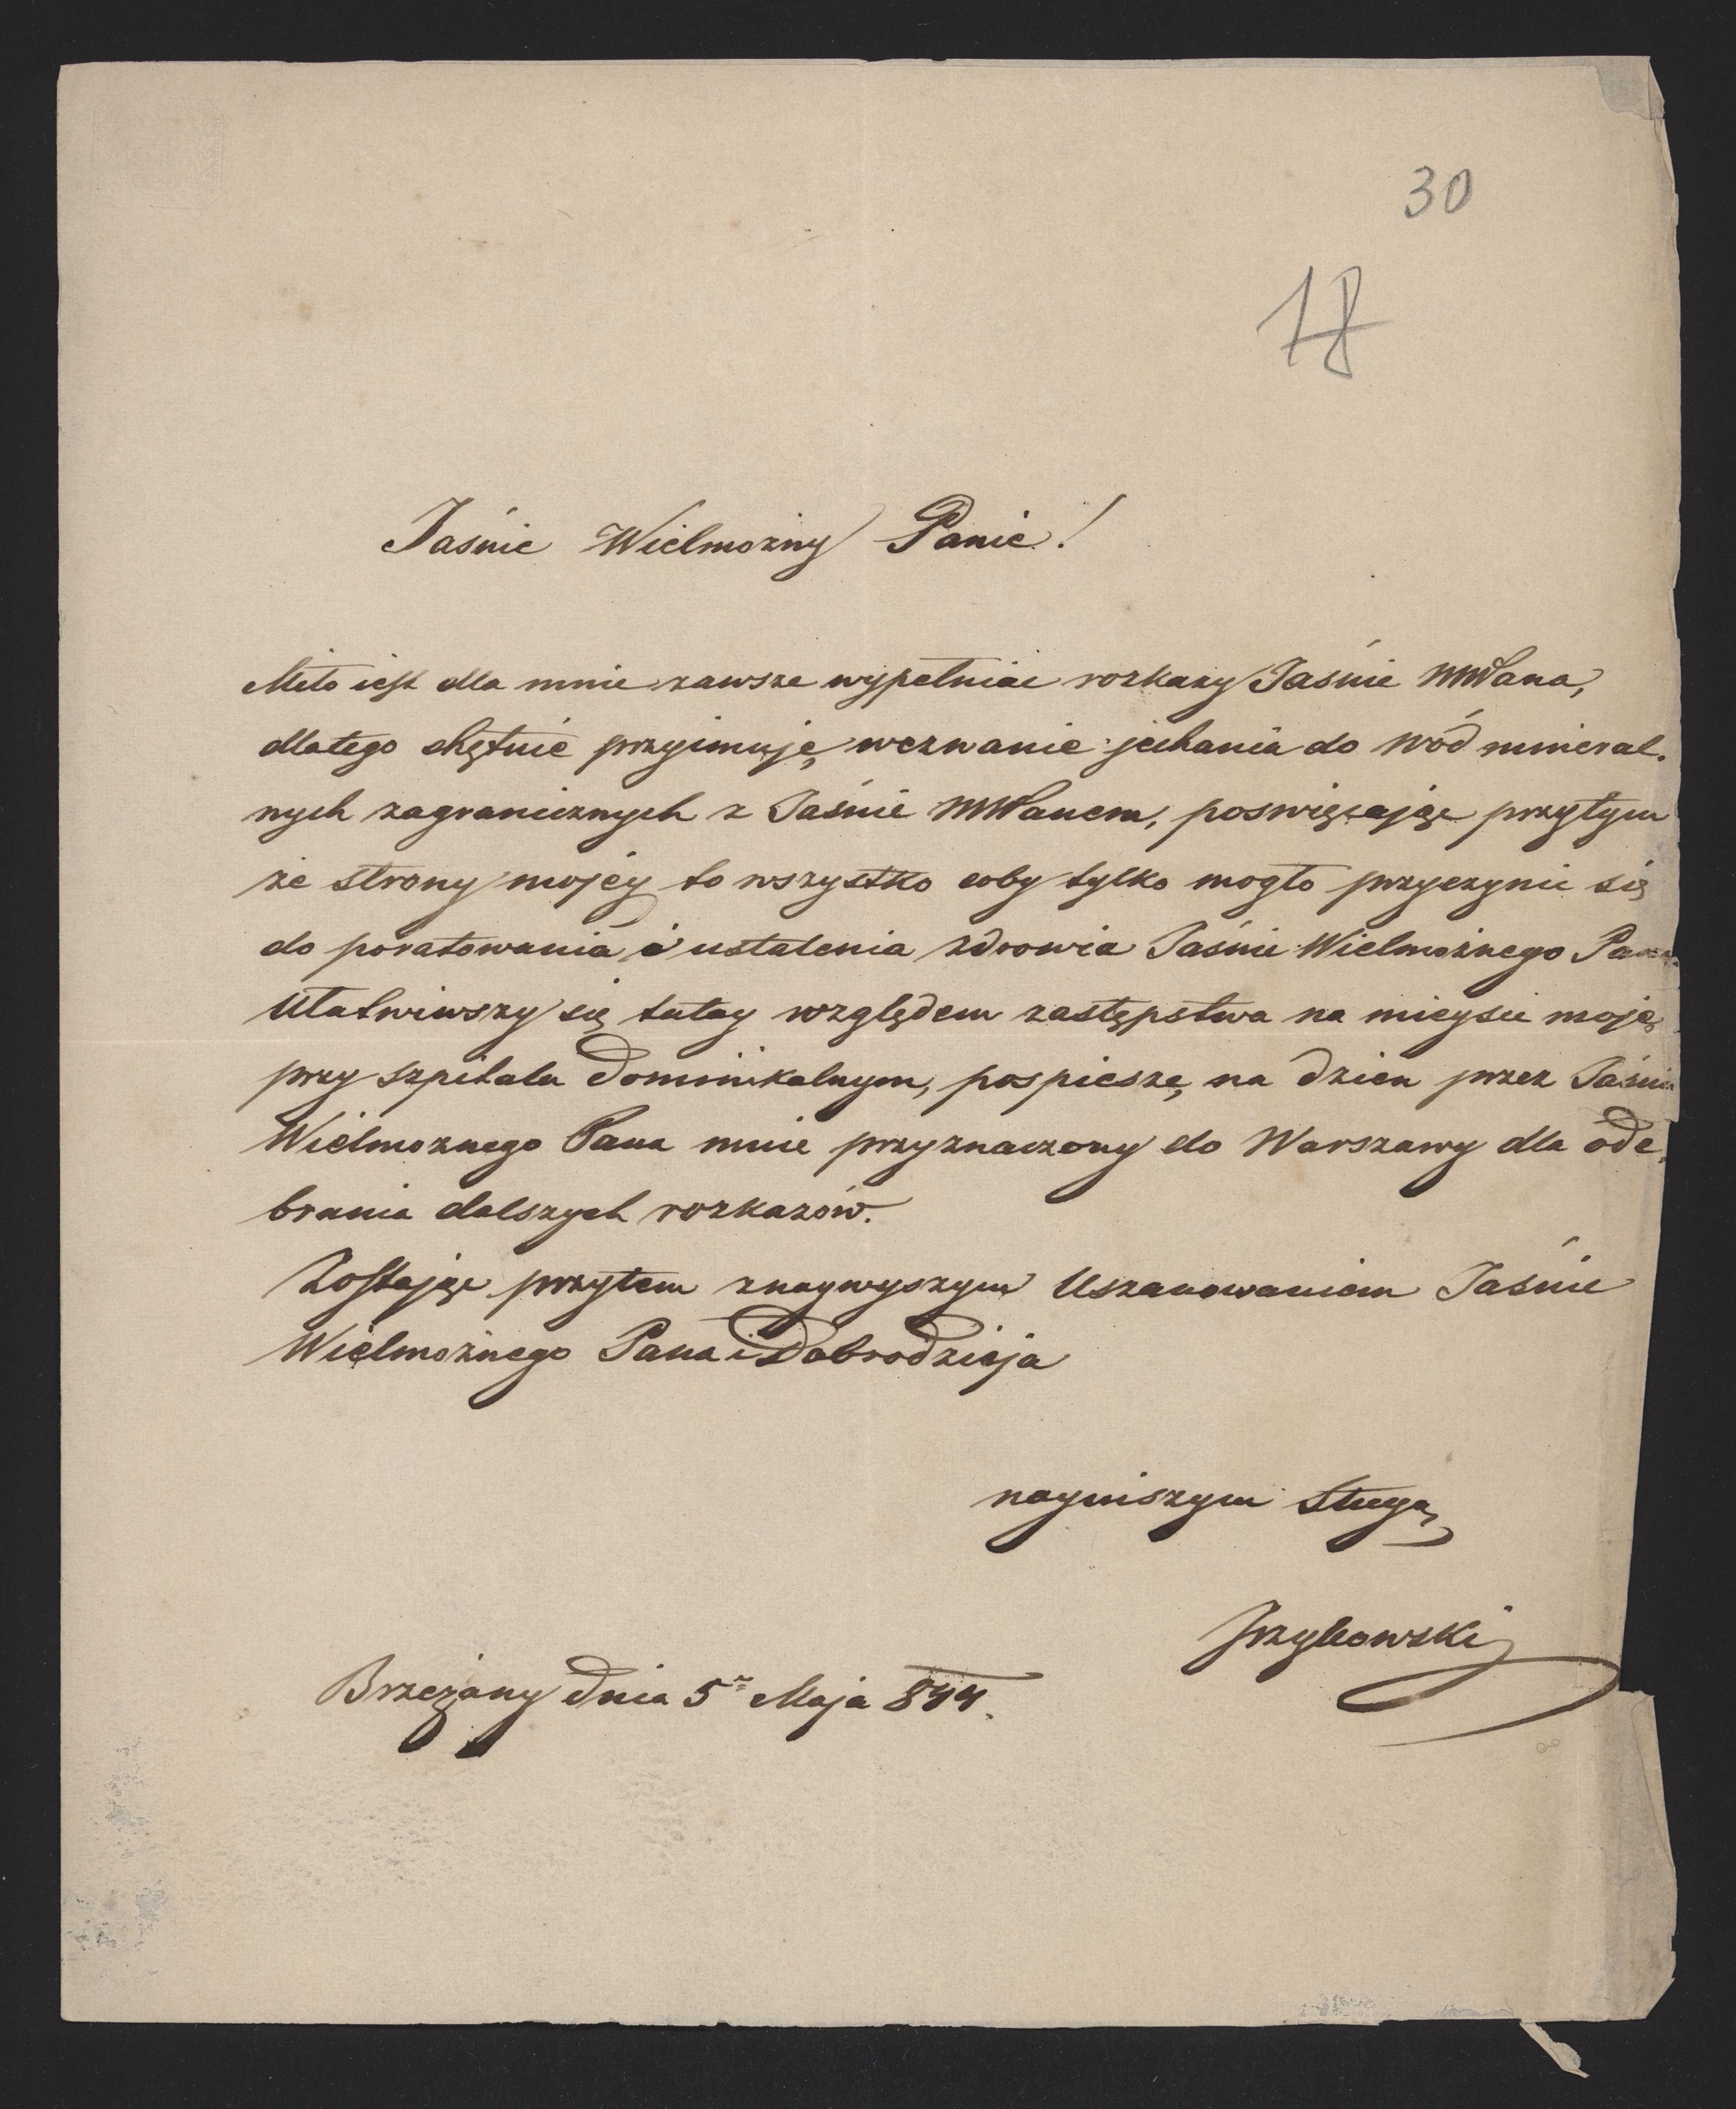 30
18
Jaśnie Wielmożny Panie!
Miło iest dla mnie zawsze wypełniać rozkazy Jaśnie WWPana,
dlatego chętnie przyimuję wezwanie jechania do wód mineral-
nych zagranicznych z Jaśnie WWPanem, poswięcając przytym
ze strony mojéy to wszystko coby tylko mogło przyczynić się
do poratowania i ustalenia zdrowia Jaśnie Wielmożnego Pana.
Ułatwiwszy się tutay względem zastępstwa na mieysce moje
przy szpitalu Dominikalnym, pospieszę na dzien przez Jaśnie
Wielmożnego Pana mnie przyznaczony do Warszawy dla ode-
brania dalszych rozkazów.
Zostając przytem znaywyszym Uszanowaniem Jaśnie
Wielmożnego Pana i Dobrodzieja
nayniszym Sługą
Brzeżany dnia 5 Maja 844.